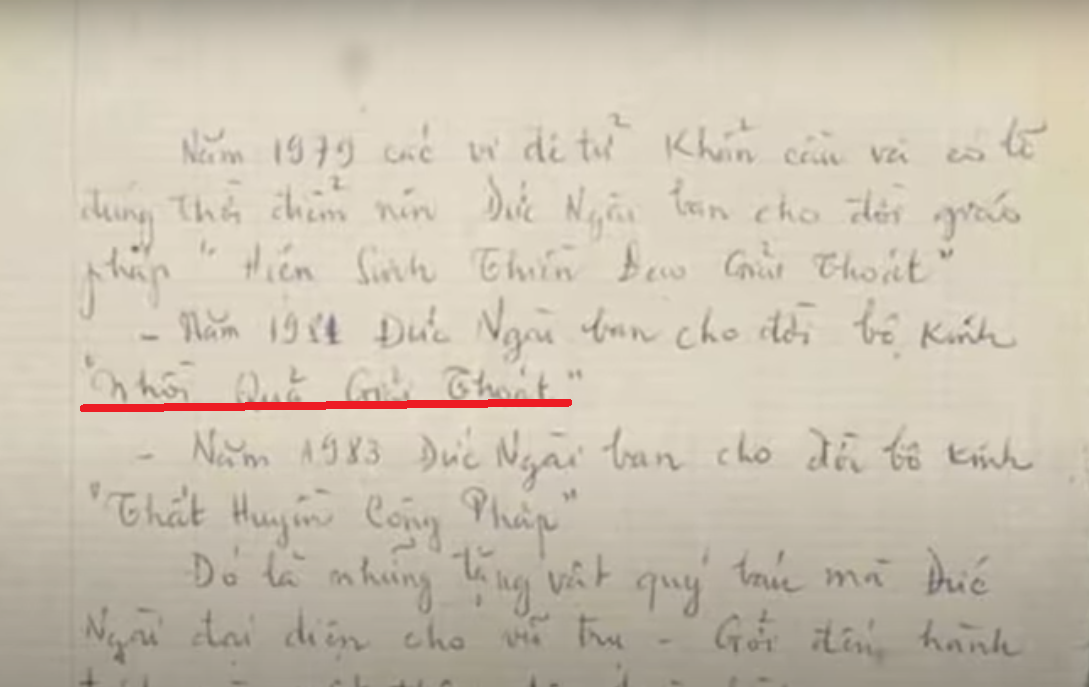 Năm 1979 các vị đệ tử khẩn cầu và có lẽ
đúng thời điểm nên Đức Ngài ban cho đời giáo
pháp "Hiện Sinh Thiền Đạo Giải Thoát"
- Năm 1981 Đức Ngài ban cho đời bộ kinh
"Nhồi Quả Giải Thoát"
- Năm 1983 Đức Ngài ban cho đời bộ kinh
"Thất Huyền Công Pháp"
Đó là những tặng vật quý báu mà Đức
Ngài đại diện cho vũ trụ - Gởi đến hành